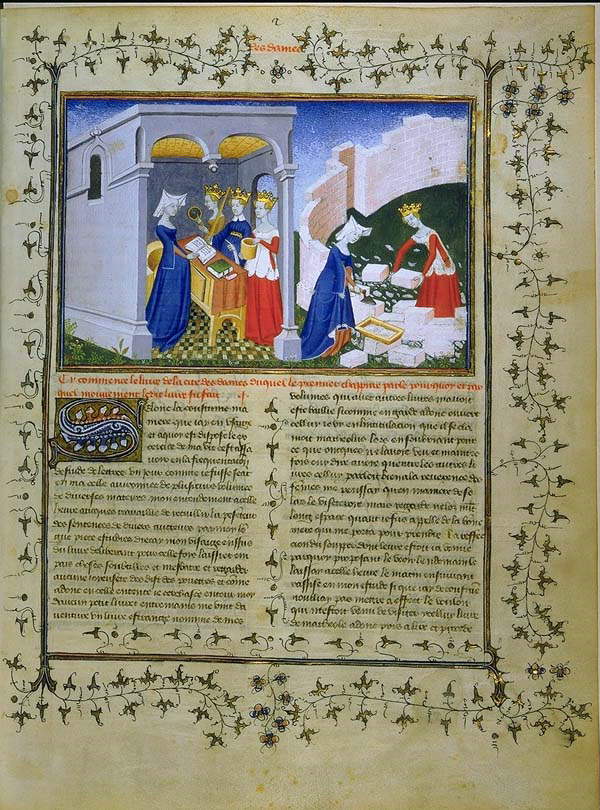 des dames
Cy commence le livre de la cite des dames duquel le premier chapitre parle pour quoy et par
quel mouvement ledit livre fu fait .j.
Selonc la coustume ma
niere que iay en usaige
et a quoy est dispose le ex
cercice de ma vie cest assa
voir en la frequentacion
destude de lettres un jour comme je fusse seant
en ma celle avironnee de plusieurs volumes
de diverses materes mon entendement a celle
heure auques travaillie de recuillir la pesanteur
des sentences de divers aucteurs par moy lon
gue piece estudies drecay mon visaige ensus
du livre deliberant pour celle fois laissier en
paix choses soubtilles et mesbatre et regarder
aucune joyeusete des dis des pouetes et comme
adonc en celle entente je cerchasse entour moy
daucun petit livret entre mains me vint da
venture un livre estrange non mie de mes
volumes qui avec autres livres mavoit
este baillie si comme en garde adonc ouvert
cellui je vy en lintitulacion que il se cla
moit matheolus lors en sousriant pour
ce que oncques ne lavoie veu et maintes
fois ouy dire avoie quentre les autres li
vres cellui parloit bien a la reverence des
femmes me pensay quen maniere de so
las le visiteroie mais regarde ne loz moult
long espace quant je fus appellee de la bonne
mere qui me porta pour prendre la reffec
cion du souper dont leure estoit ja venue
parquoy proposant le veoir lendemain le
laissay a celle heure le matin ensuivant
rassise en mon estude si que jay de coustume
noubliay pas mettre a effect le vouloir
qui mestoit venu de visiter icellui livre
de matheole adonc pris a lire et proceder